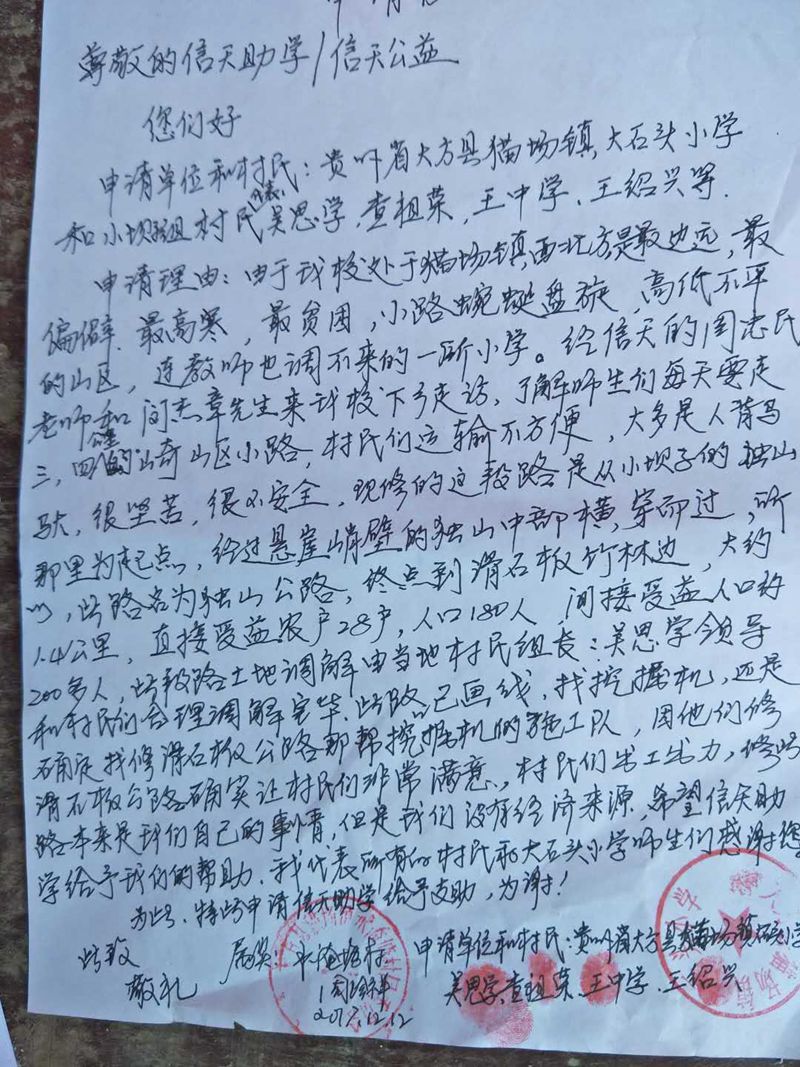 申请书
尊敬的信天助学/信天公益
您们好
申请单位和村民：贵州省大方县猫场镇,大石头小学
和小坝组村民代表:吴思学.查祖荣,王中学、王绍兴等.
申请理由：由于我校处于猫场镇西北方是最边远,最
偏僻.最高寒,最贫困,小路蜿蜒盘旋,高低不平
的山区,连教师也调不来的一所小学。经信天的周志民
老师和 闵杰章先生来我校下乡走访,了解师生们每天要走
三,四 的山奇山区小路,村民们运输不方便,大多是人背马
驮,很坚苦,很不安全,现修的这段路是从小坝子的独山
那里为起点,经过悬崖峭壁的独山中部横,穿而过,所
以,此路名为独山公路,终点到滑石板竹林边,大约
1.4公里,直接受益农户28户,人口180人,间接受益人口约
200多人,此段路土地调解由当地村民组长:吴思学领导
和村民们合理调解完毕.此路已画线,找挖掘机,还是
确定找修滑石板公路那帮挖掘机的施工队,因他们修
滑石板公路确实让村民们非常满意,村民们出工出力,修此
路本来是我们自己的事情,但是我们没有经济来源,希望信天助
学给予我们的帮助.我代表所有的村民和大石头小学师生们感谢您
为此、特此申请信天助学给予支助,为谢!
此致 属实: 申请单位和村民:贵州省大方县猫场镇大石头小学
敬礼 吴思学,查祖荣、王中学、王绍兴
2017.12.12